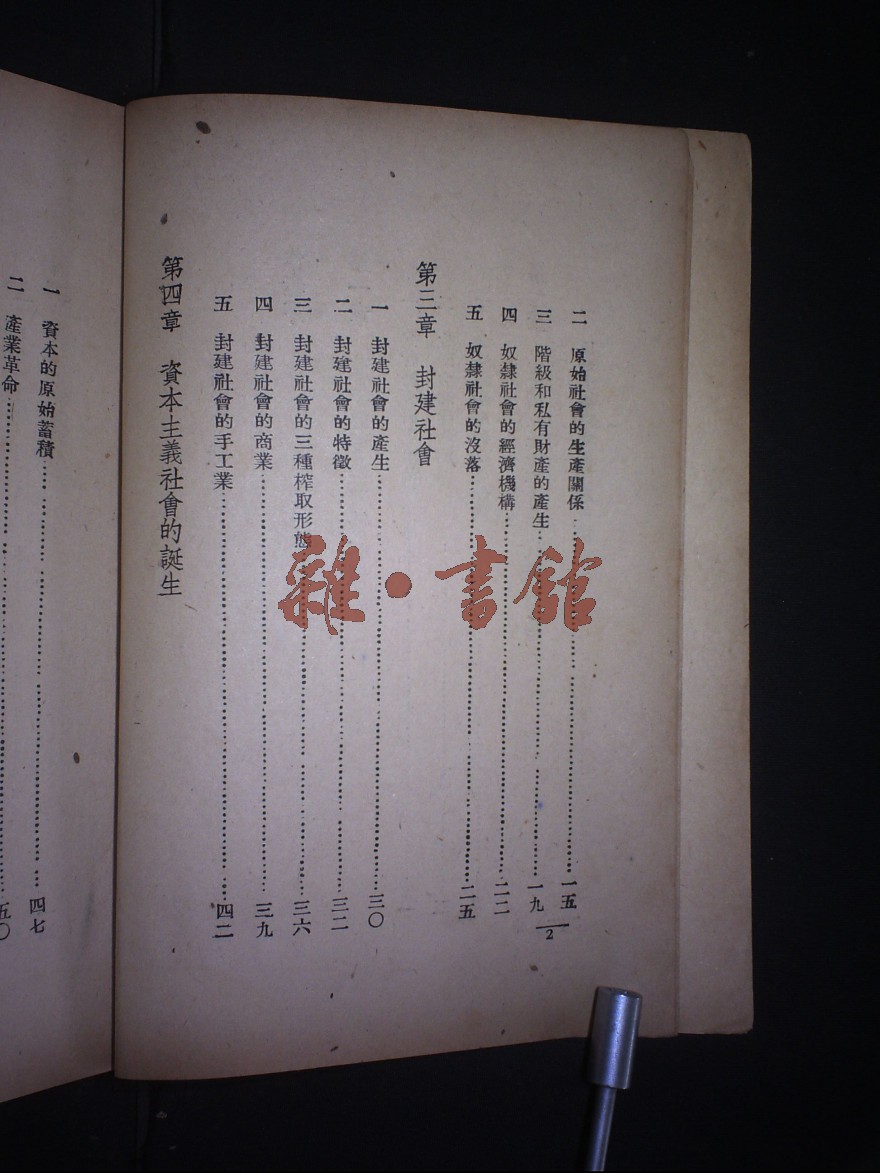 二　原始社會的生產關係……一五
三　階級和私有財產的產生……一九
四　奴隸社會的經濟機構……二二
五　奴隸社會的沒落……二五
第三章　封建社會
一　封建社會的產生……三〇
二　封建社會的特徵……三二
三　封建社會的三種榨取形態……三六
四　封建社會的商業……三九
五　封建社會的手工業……四二
第四章　資本主義社會的誕生
2
一　資本的原始蓄積……四七
二　產業革命……五〇
雜·書館